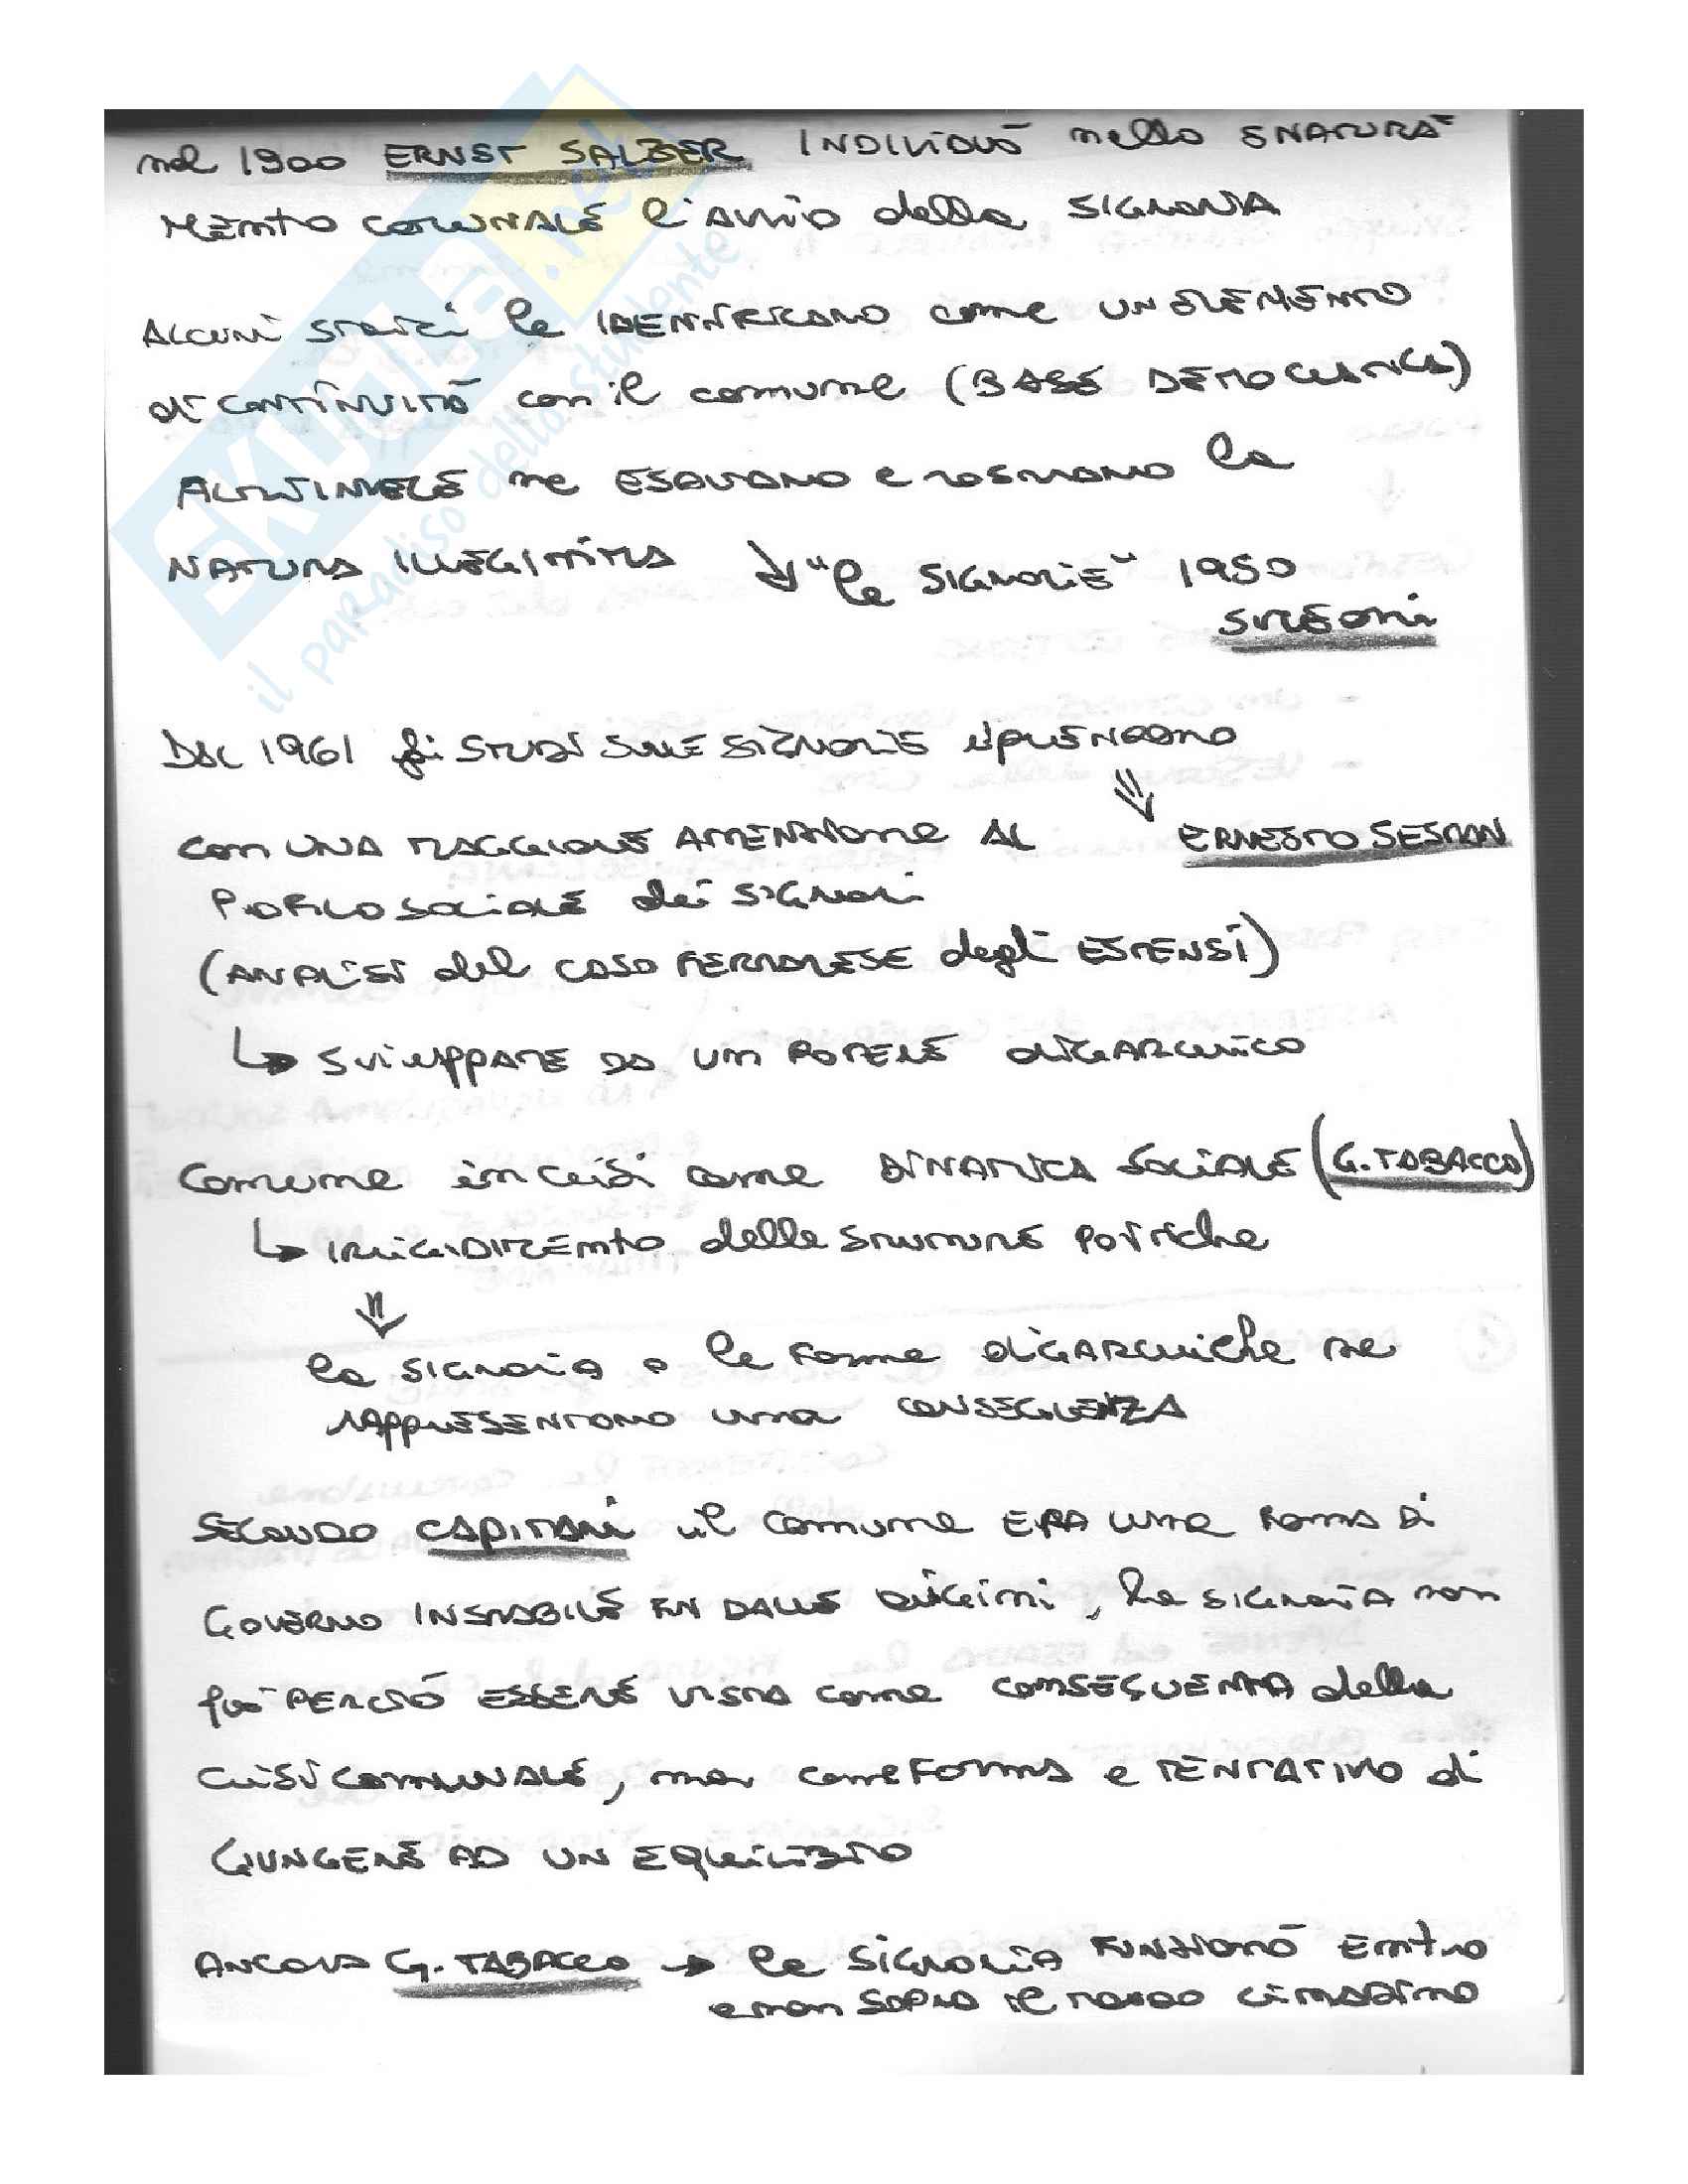 nel 1900 ERNST SALZER INDIVIDUÒ nello SNATURA
MENTO COMUNALE l'AVVIO della SIGNORIA
ALCUNI STORICI le IDENTIFICANO come UN ELEMENTO
di CONTINUITÀ con il comune (BASE DEMOCRATICA)
ALTRI INVECE ne ESALTANO e la
NATURA ILLEGITTIMA "le SIGNORIE" 1950
SIMEONI
DAL 1961 gli STUDI SULLE SIGNORIE riprendono
CON UNA MAGGIORE ATTENZIONE AL ERNESTO SESTAN
PROFILO SOCIALE dei SIGNORI
(ANALISI del CASO FERRARESE degli ESTENSI)
SVILUPPATE DA UN POTERE OLIGARCHICO
COMUNE in CRISI come DINAMICA SOCIALE (G. TABACCO)
IRRIGIDIMENTO delle STRUTTURE POLITICHE
la SIGNORIA o le FORME OLIGARCHICHE ne
RAPPRESENTANO una CONSEGUENZA
SECONDO CAPITANI il COMUNE ERA una FORMA DI
GOVERNO INSTABILE FIN DALLE ORIGINI, la SIGNORIA non
può PERCIÒ ESSERE VISTA come CONSEGUENZA della
CRISI COMUNALE, ma come FORMA e TENTATIVO di
GIUNGERE AD UN EQUILIBRIO
ANCORA G. TABACCO → la SIGNORIA FUNZIONÒ ENTRO
e non SOPRA il MONDO CITTADINO
SKUOLA.net
il paradiso dello studente